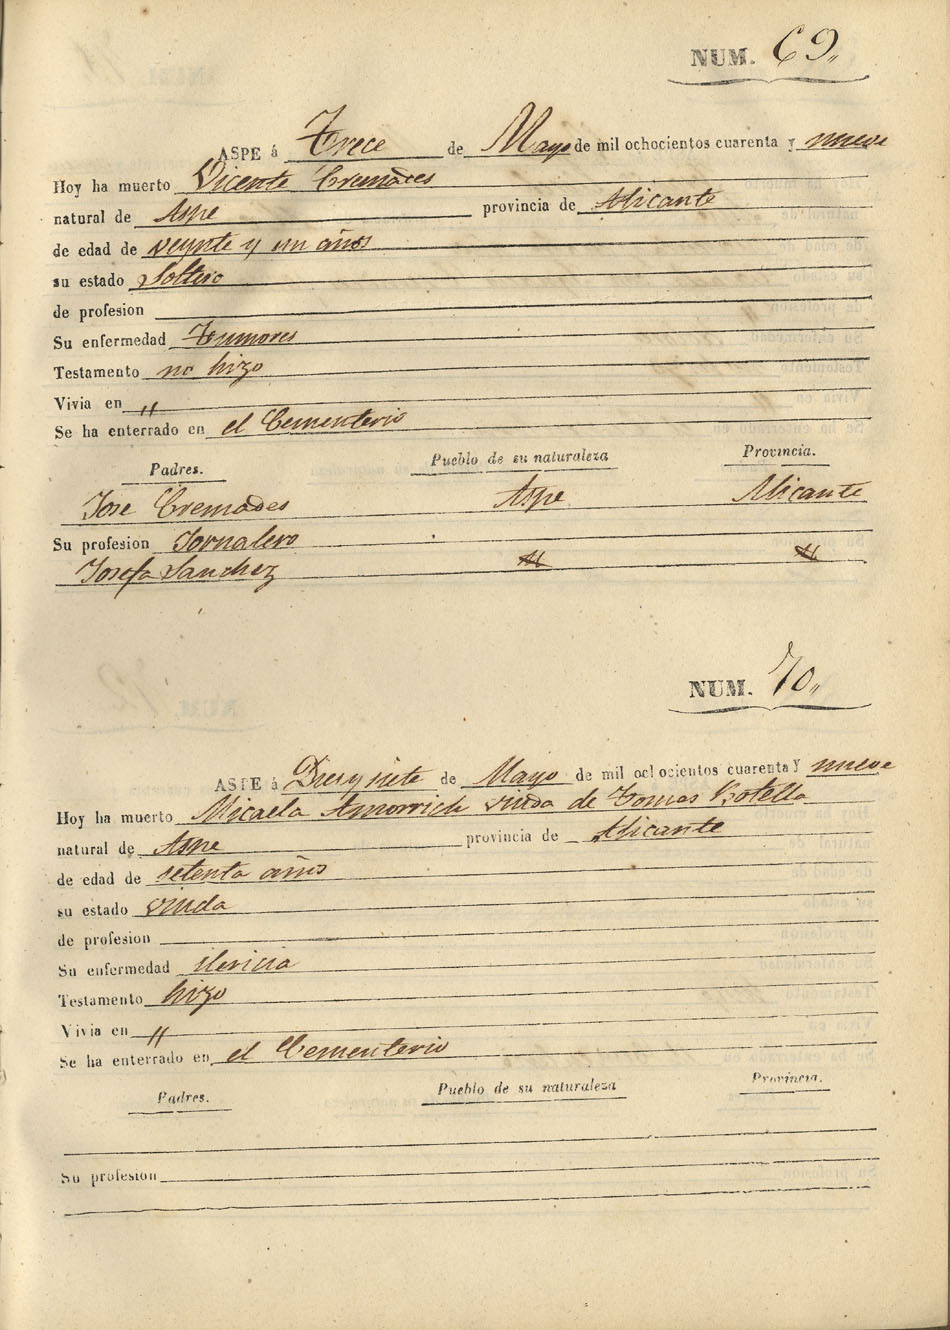 NUM. 69„
ASPE á Trece de Mayo de mil ochocientos cuarenta y nueve
Hoy ha muerto Vicente Cremades
natural de Aspe provincia de Alicante
de edad de veynte y un años
su estado Soltero
de profesion
Su enfermedad Tumores
Testamento no hizo
Vivia en "
Se ha enterrado en el Cementerio
Padres. Pueblo de su naturaleza Provincia.
Jose Cremades Aspe Alicante
Su profesion Jornalero
Josefa Sanchez
NUM. 70„
ASPE á Diesysiete de Mayo de mil ochocientos cuarenta y nueve
Hoy ha muerto Micaela viuda de Tomas Botella
natural de Aspe provincia de Alicante
de edad de setenta años
su estado viuda
de profesion
Su enfermedad
Testamento hizo
Vivia en "
Se ha enterrado en el Cementerio
Padres. Pueblo de su naturaleza Provincia.
Su profesion